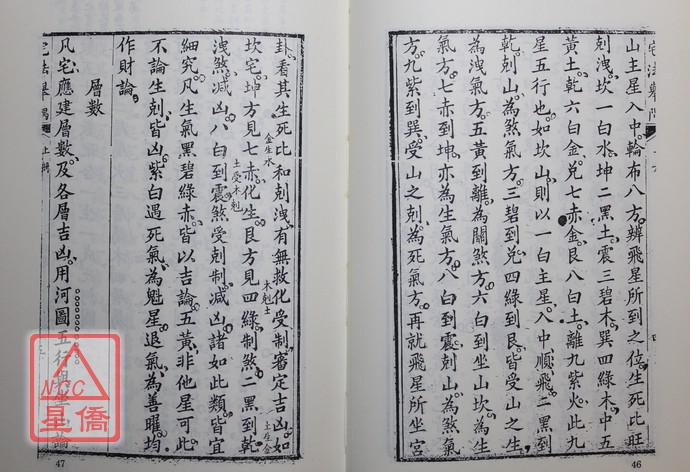 宅法舉隅
山主星入中輪布八方辨飛星所到之位生死比旺
剋洩坎一白水坤二黑土震三碧木巽四綠木中五
黃土乾六白金兌七赤金艮八白土離九紫火此九
星五行也如坎山則以一白主星入中順飛二黑到
乾剋山為煞氣方三碧到兌四綠到艮皆受山之生
為洩氣方五黃到離為關煞方六白到坐山坎為生
氣方七赤到坤亦為生氣方八白到震剋山為煞氣
方九紫到巽受山之剋為死氣方再就飛星所坐宮
46
卦看其生死比和剋洩有無救化受制審定吉凶如
坎宅坤方見七赤化生金生水艮方見四綠制煞木剋土二黑到乾土生金
洩煞減凶八白到震煞受剋制土受木剋減凶諸如此類皆宜
細究凡生氣黑碧綠赤皆以吉論五黃非他星可比
不論生剋皆凶紫白遇死氣為魁星退氣為善曜均
作財論
層數
凡宅應建層數及各層吉凶用河圖五行與坐山論
宅法舉隅
47
NCC
星僑